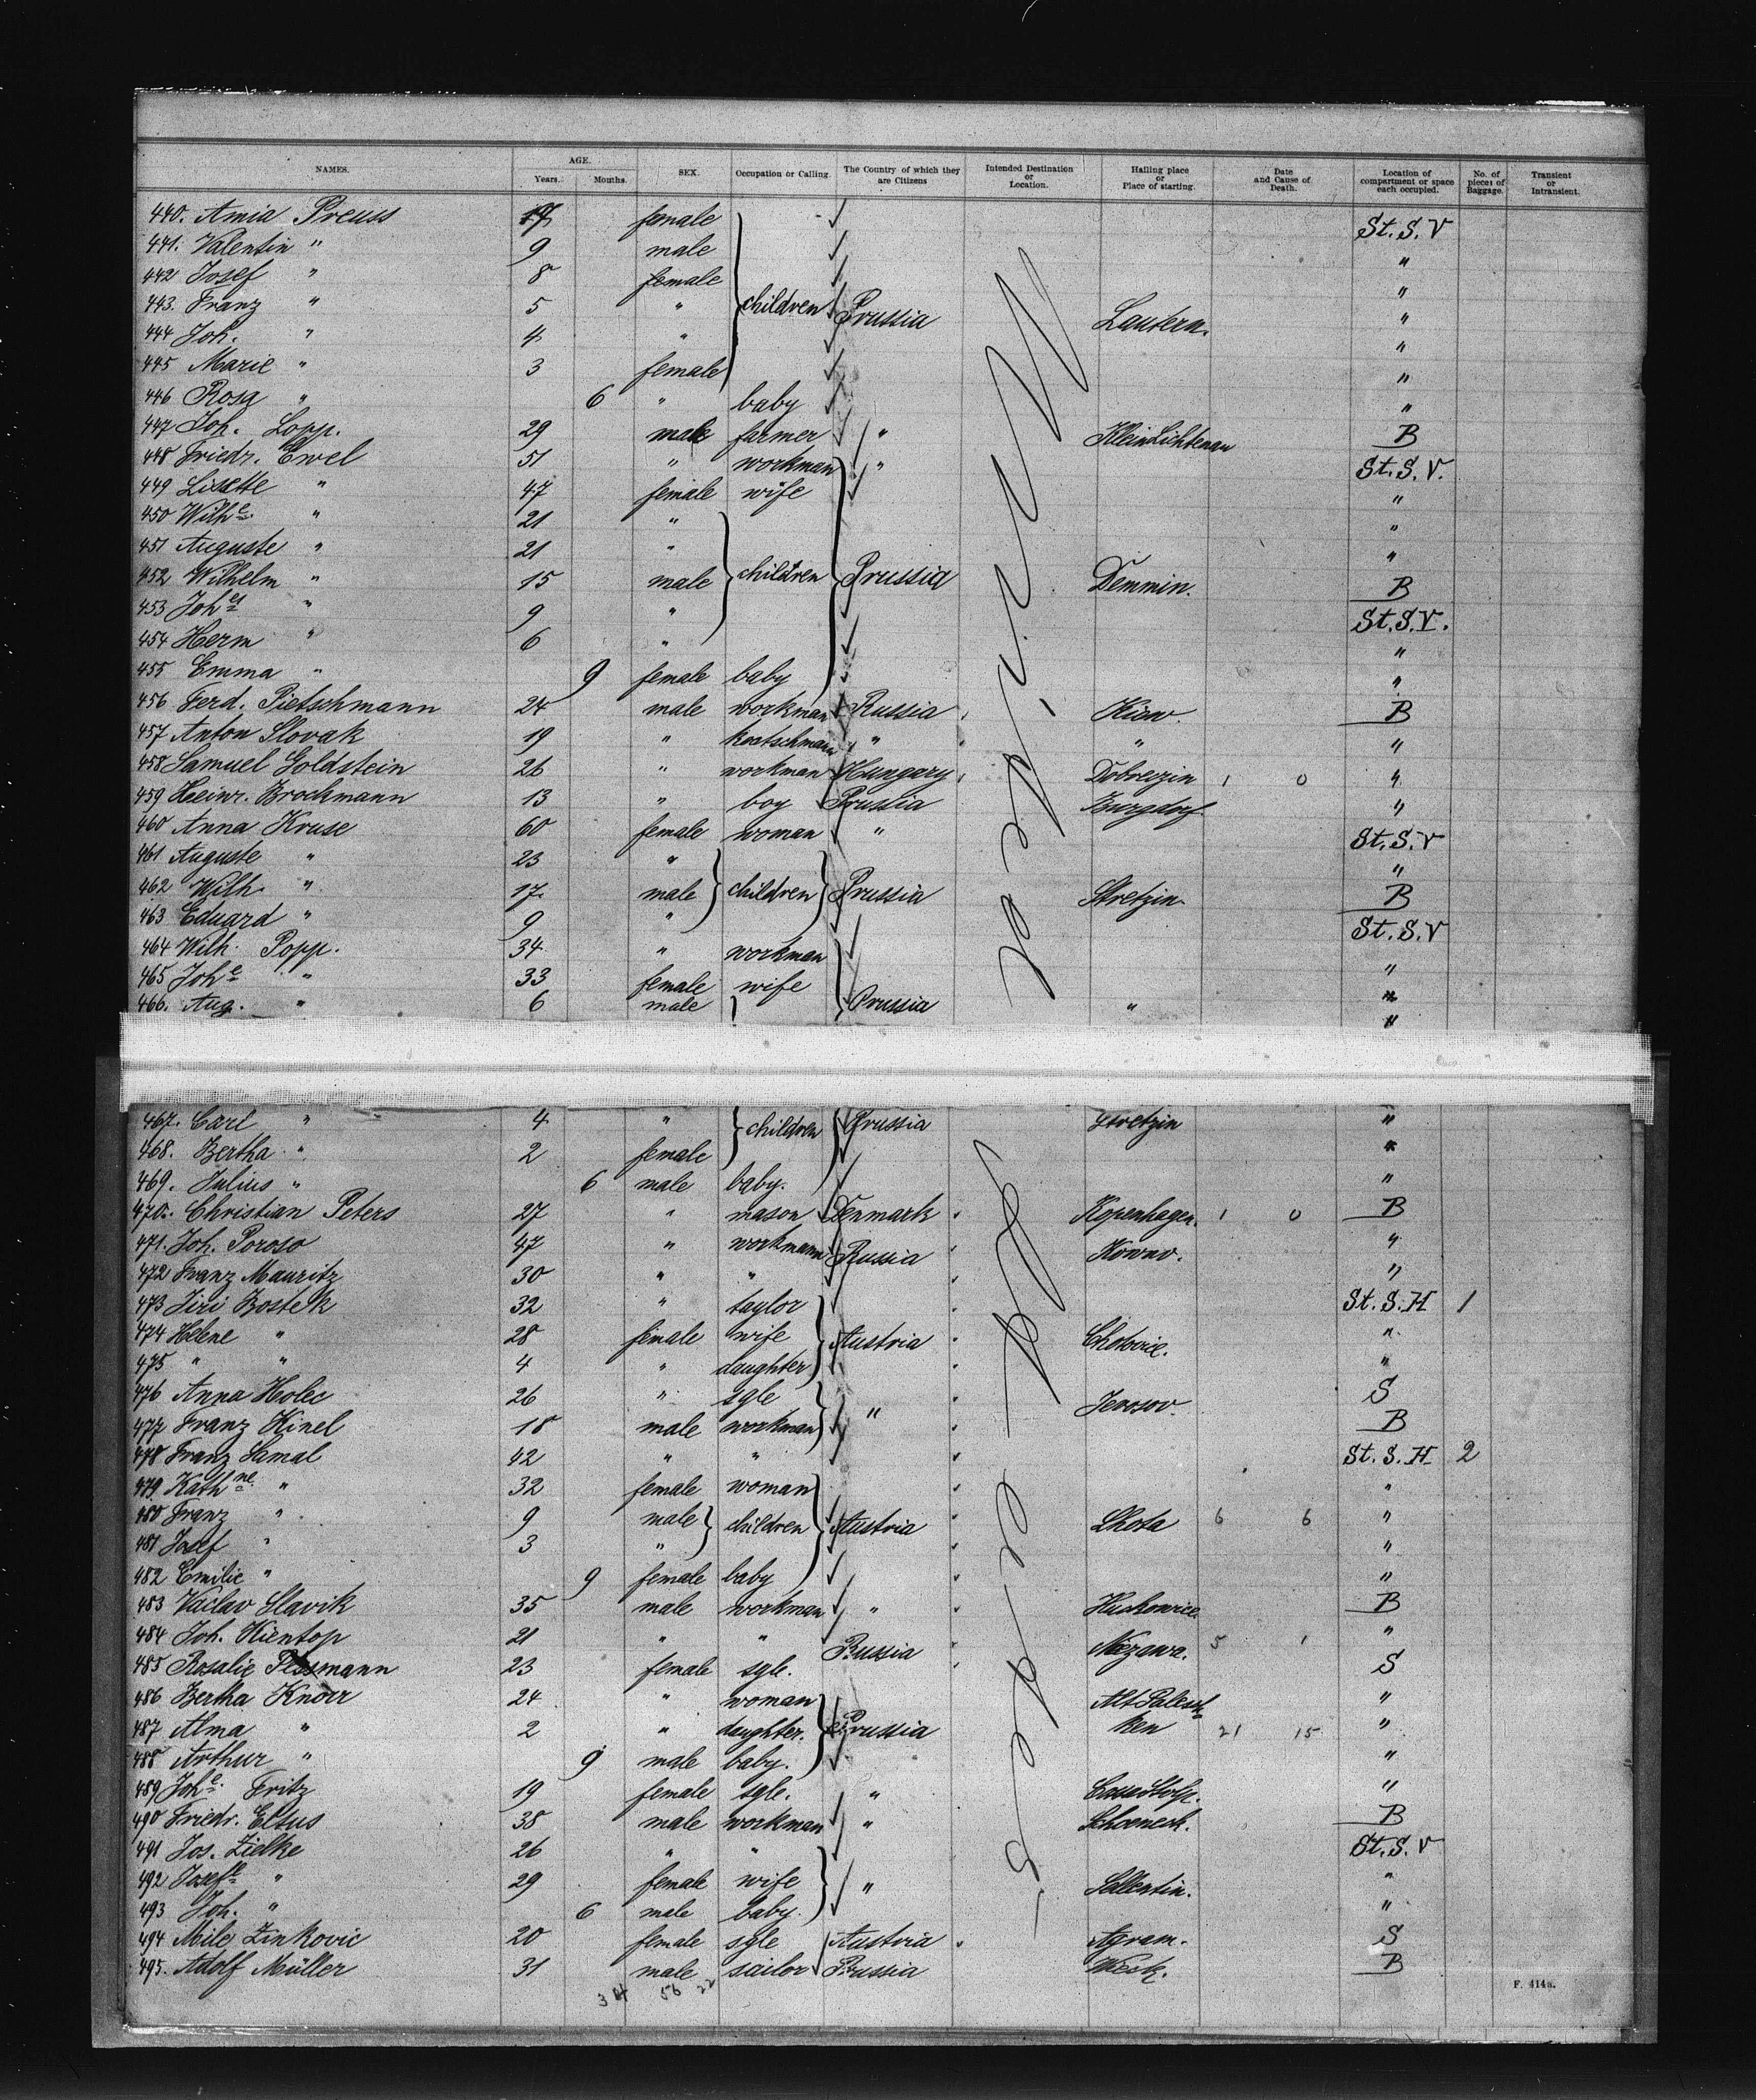 NAMES. AGE. Years. Months. SEX. Occupation or Calling. The Country of which they are Citizens Intended Destination or Location. Hailing place or Place of starting. Date and Cause of Death. Location of compartment or space each occupied. No. of pieces of Baggage. Transient or Intransient.
440. Amia Preuss 17 female St. S. V
441. Valentin " 9 male "
442 Josef " 8 female "
443. Franz " 5 " children Prussia Lautern. "
444 Joh. " 4 " "
445 Marie " 3 female "
446 Rosa " 6 " baby "
447 Joh. Lopp. 29 male farmer " Klein Lichtenau B
448 Friedr. Ewel 51 " workman " St. S. V.
449 Lisette " 47 female wife "
450 Wilhe. " 21 " "
451 Auguste " 21 " "
452 Wilhelm " 15 male children Prussia Demmin. B
453 Johes " 9 " St. S. V.
454 Herm " 6 " "
455 Emma " 9 female baby "
456 Ferd. Pietschmann 24 male workman Russia Kiew. B
457 Anton Slovak 19 " kootschmann " " "
458 Samuel Goldstein 26 " workman Hungary Dobreczin 1 0 "
459 Heinr. Brockmann 13 " boy Prussia Burgdorf "
460 Anna Kruse 60 female woman " St. S. V
461 Auguste " 23 " "
462 Wilh. " 17. male children Prussia Stretzin B
463 Eduard " 9 " St. S. V
464 Wilh. Popp. 34 " workman
465 Johe " 33 female wife "
466. Aug. " 6 male Prussia " "
"
467. Carl " 4 " children Prussia Stretzin "
468. Bertha " 2 female "
469. Julius " 6 male baby. "
470. Christian Peters 27 " mason Denmark Kopenhagen. 1 0 B
471. Joh. Poroso 47 " workmann Russia Kowno. "
472 Franz Mauritz 30 " " "
473 Jiri Bostek 32 " taylor St. S. H 1
474 Helene " 28 female wife Austria Chotovic. "
475 " " 4 " daughter "
476 Anna Holec 26 " sgle " Jevosov. S
477 Franz Kinel 18 male workman B
478 Franz Samal 42 " " St. S. H 2
479 Kathne " 32 female woman "
480 Franz " 9 male children Austria Lhota 6 6 "
481 Josef " 3 " "
482 Emilie " 9 female baby "
483 Vaclav Slavik 35 male workman " B
484 Joh. Kientop 21 " " Russia 5 1 "
485 Rosalie 23 female sgle. S
486 Bertha Knorr 24 " woman Alt Palesch- "
487 Alma " 2 " daughter. Prussia ken 21 15 "
488 Arthur " 9 male baby. "
489 Johe. Fritz 19 female sgle. " "
490 Friedr. Elsus 38 male workman " Schoeneck. B
491 Jos. Zielke 26 " " St. S. V
492 Josefe " 29 female wife " Sallentin. "
493 Joh. " 6 male baby. "
494 Mile Zinkovic 20 female sgle Austria Agram. S
495. Adolf Müller 31 male sailor Prussia B
56 22
F. 414a.